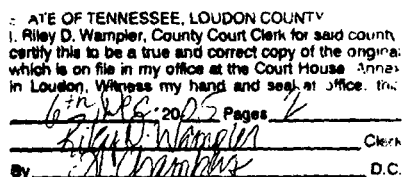 ATE OF TENNESSEE, LOUDON COUNTY
I, Riley D. Wampler, County Court Clerk for said county
certify this to be a true and correct copy of the original
which is on file in my office at the Court House Annex
in Loudon, Witness my hand and seal at office, this
6th, Dec. 2005 Pages 2
Riley D. Wampler Clerk
By D.C.